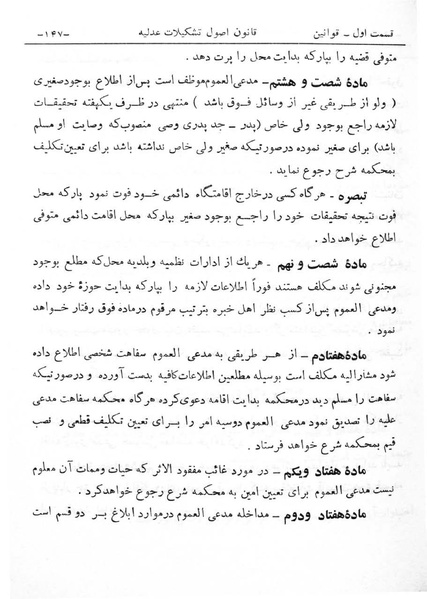 قسمت اول ـ قوانین قانون اصول تشکیلات عدلیه ـ۱۴۷ـ
متوفی قضیه را بپارکه بدایت محل را پرت دهد .
مادهٔ شصت و هشتم ـ مدعی‌العموم موظف است پس از اطلاع بوجود صغیری
( ولو از طریقی غیر از وسائل فوق باشد ) منتهی در ظرف یکهفته تحقیقات
لازمه راجع بوجود ولی خاص (پدر ـ جد پدری وصی منصوب که وصایت او مسلم
باشد) برای صغیر نموده درصورتیکه صغیر ولی خاص نداشته باشد برای تعیین تکلیف
بمحکمه شرح رجوع نماید .
تبصره ـ هرگاه کسی درخارج اقامتگاه دائمی خود فوت نمود پارکه محل
فوت نتیجه تحقیقات خود را راجع بوجود صغیر بپارکه محل اقامت دائمی متوفی
اطلاع خواهد داد .
مادهٔ شصت و نهم ـ هریك از ادارات نظمیه وبلدیه محل که مطلع بوجود
مجنونی شوند مکلف هستند فوراً اطلاعات لازمه را بپارکه بدایت حوزهٔ خود داده
ومدعی العموم پس از کسب نظر اهل خبره بترتیب مرقوم درماده فوق رفتار خواهد
نمود .
مادهٔ هفتادم ـ از هر طریقی به مدعی العموم سفاهت شخصی اطلاع داده
شود مشارالیه مکلف است بوسیله مطلعین اطلاعات کافیه بدست آورده و درصورتیکه
سفاهت را مسلم دید درمحکمه بدایت اقامه دعوی کرده هرگاه محکمه سفاهت مدعی
علیه را تصدیق نمود مدعی العموم دوسیه امر را برای تعیین تکلیف قطعی و نصب
قیم بمحکمه شرع خواهد فرستاد .
مادهٔ هفتاد ویکم ـ در مورد غائب مفقود الاثر که حیات وممات آن معلوم
نیست مدعی العموم برای تعیین امین به محکمه شرع رجوع خواهدکرد .
مادهٔ هفتاد ودوم ـ مداخله مدعی العموم درموارد ابلاغ بر دو قسم است